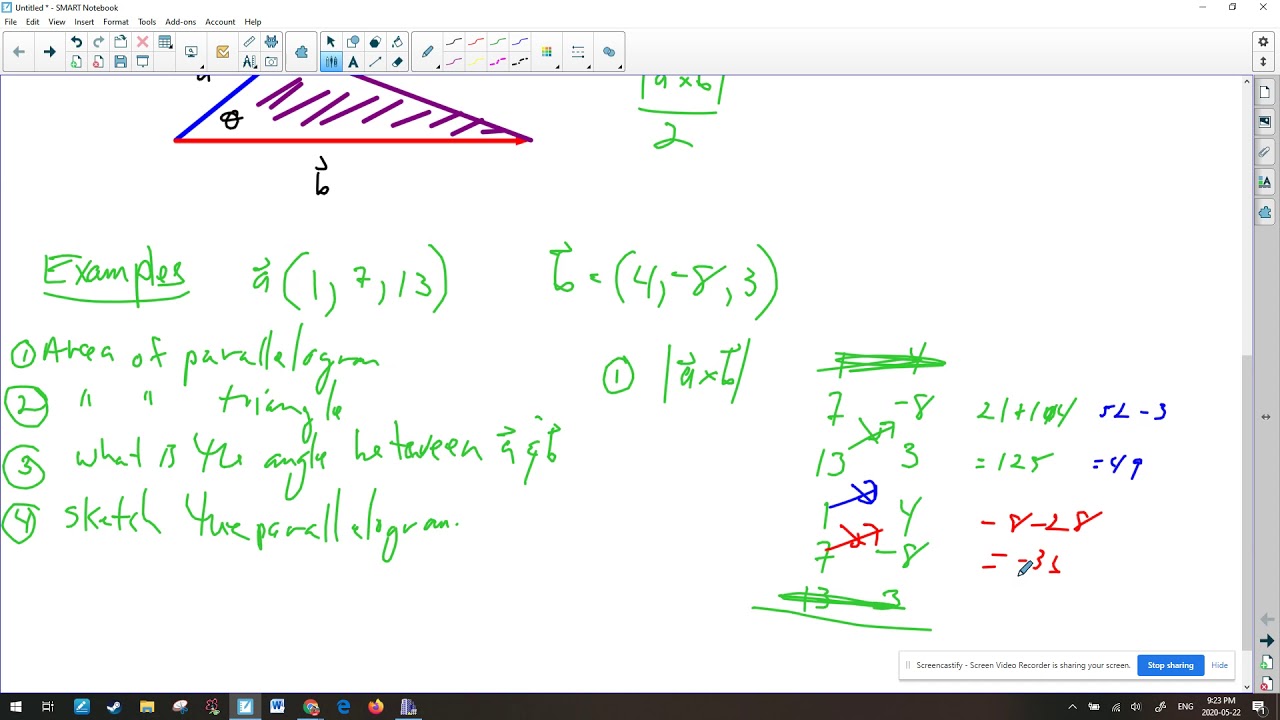 Untitled * - SMART Notebook
File Edit View Insert Format Tools Add-ons Account Help
|a x b|
2
θ
b
Examples a (1, 7, 13) b = (4, -8, 3)
① Area of parallelogram
② " " triangle
③ what is the angle between a & b
④ sketch the parallelogram.
① |a x b|
7 -8 21+104 52-3
13 3 =125 =49
1 4 -8-28
7 -8 = -36
13 3
Screencastify - Screen Video Recorder is sharing your screen. Stop sharing Hide
9:23 PM
ENG
2020-05-22